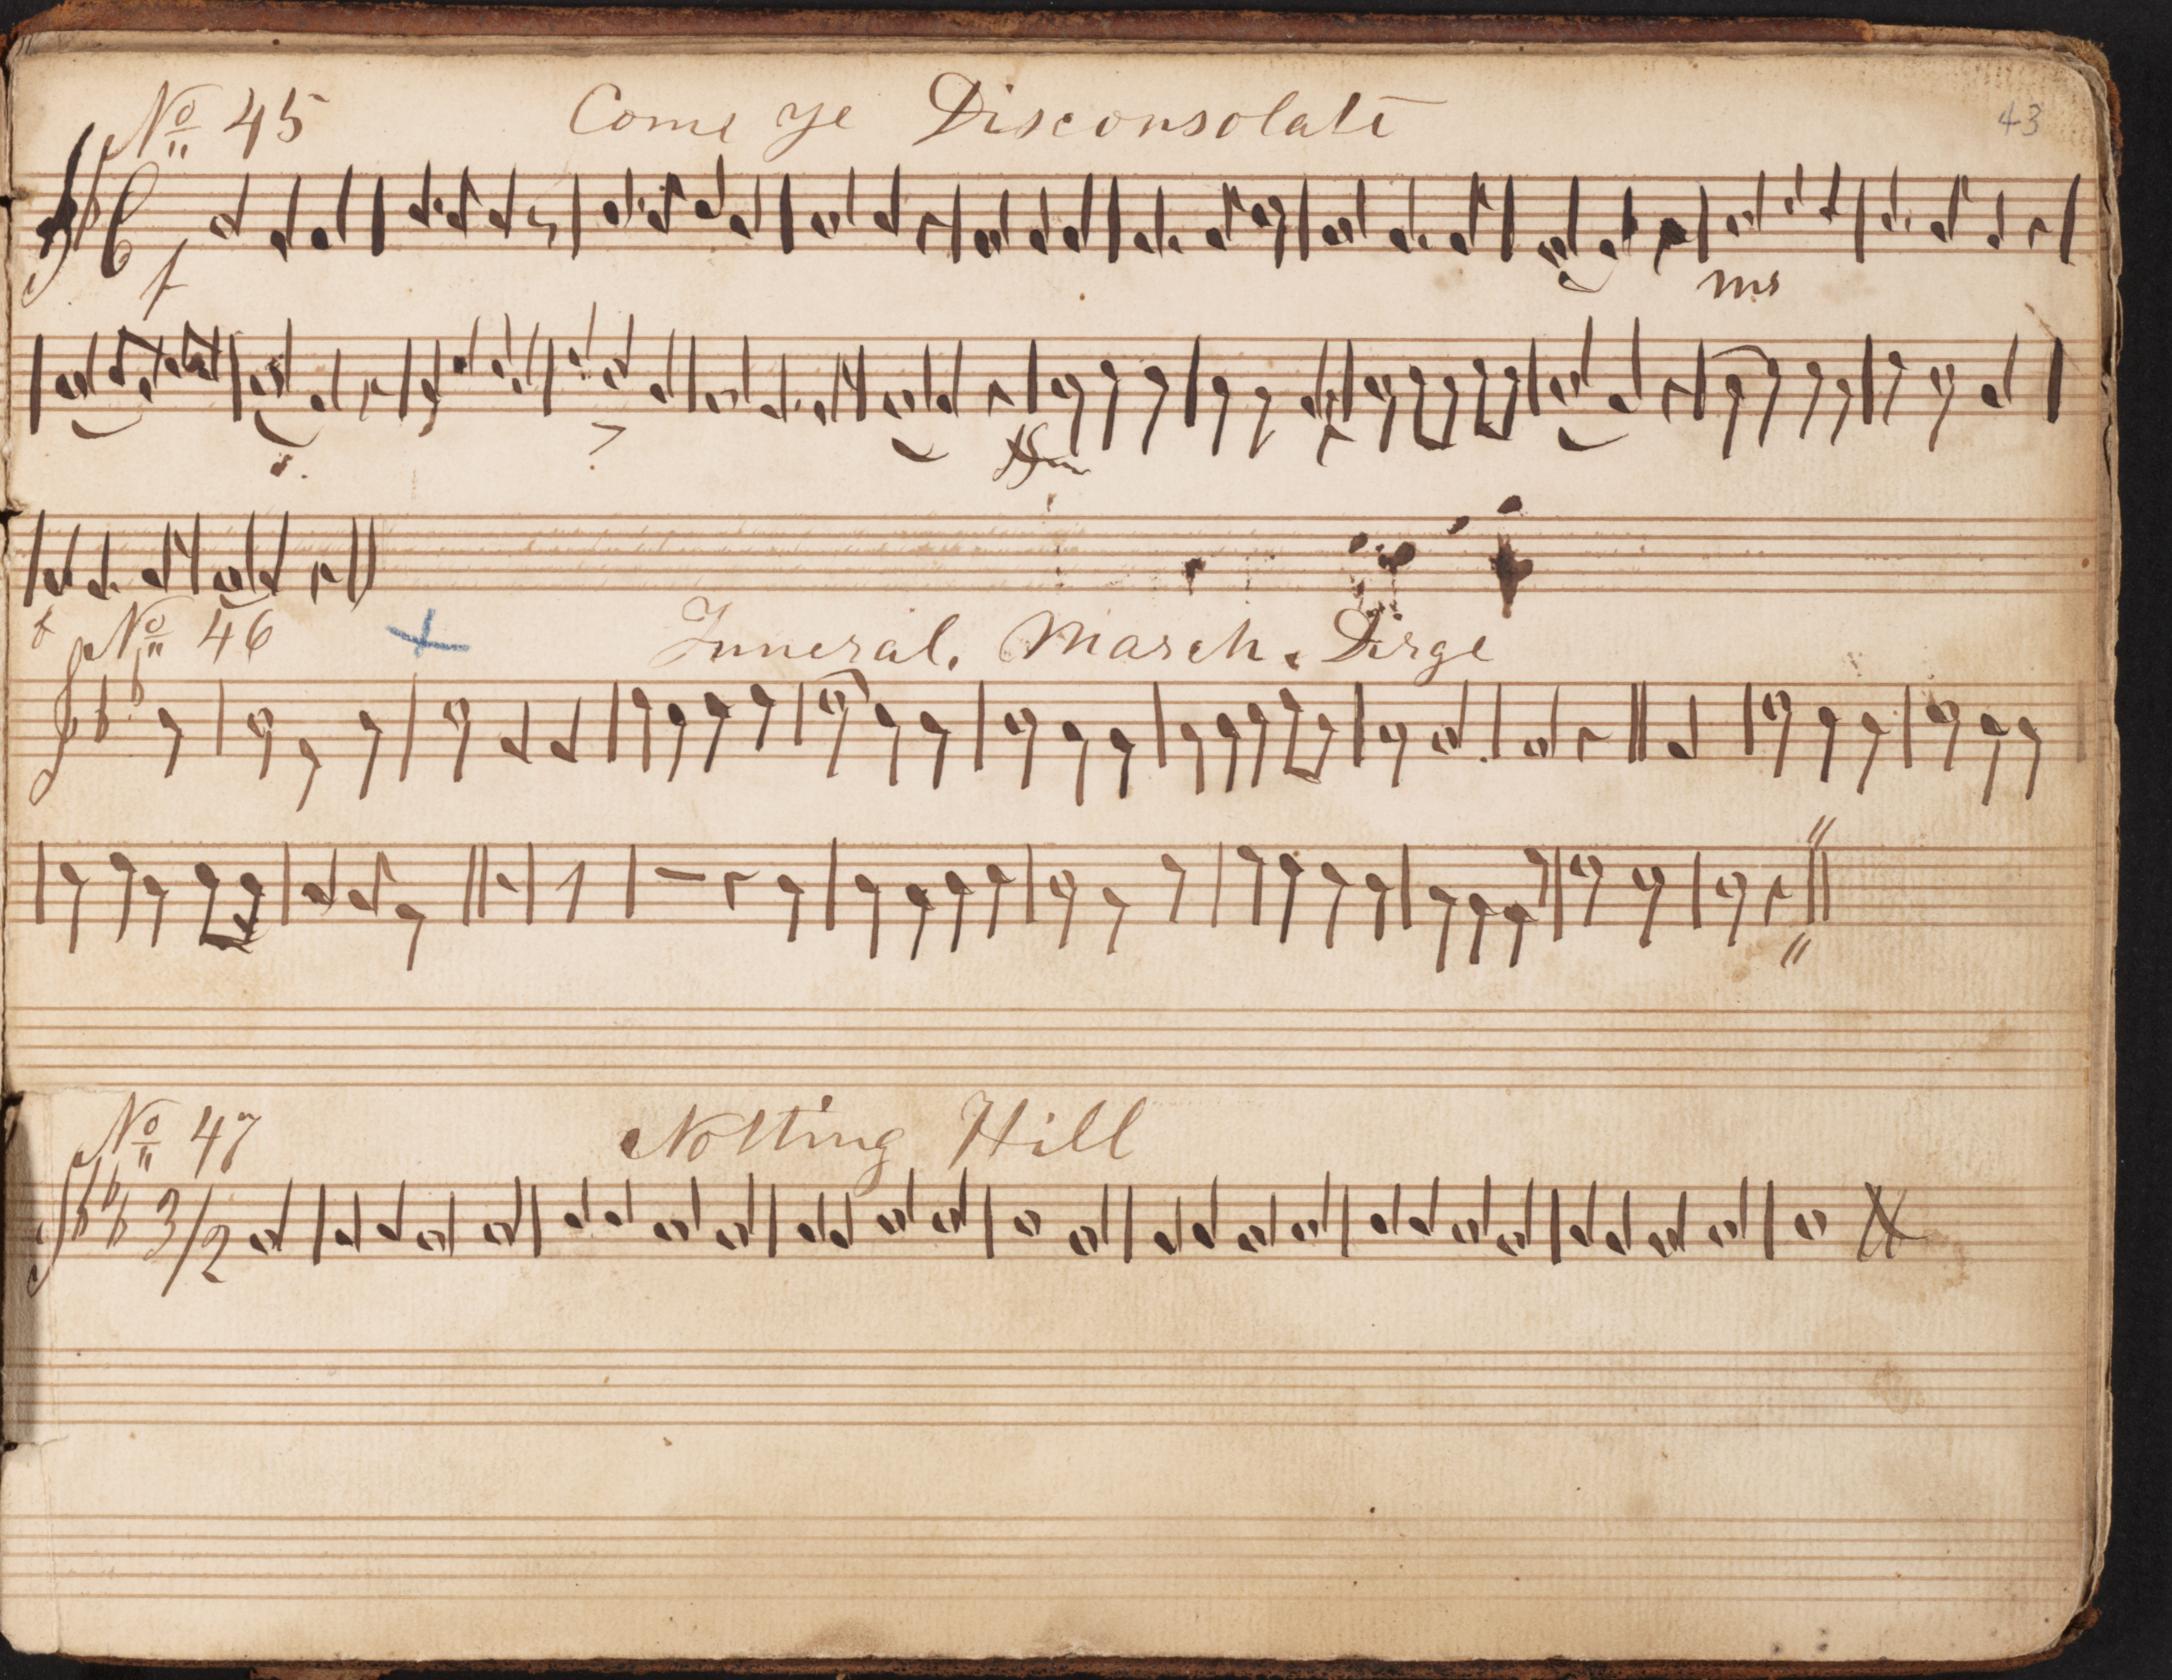 43
No 45 Come ye Disconsolate
f
ms
f
No 46 Funeral. March. Dirge
No 47 Notting Hill
3/2